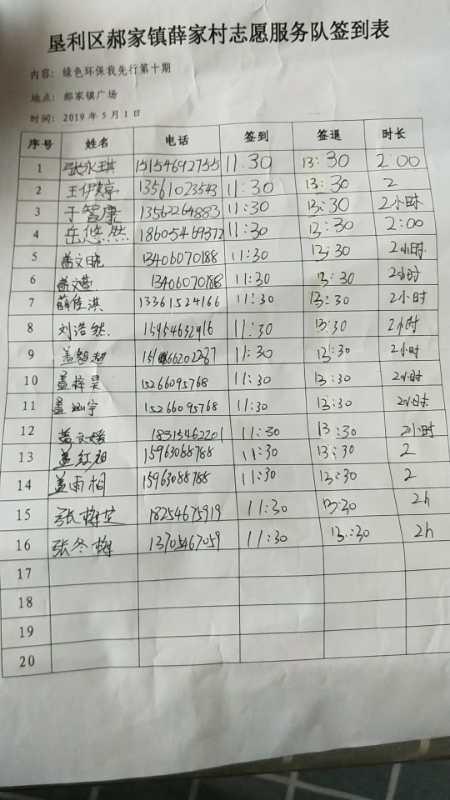 垦利区郝家镇薛家村志愿服务队签到表
内容：绿色环保我先行第十期
地点：郝家镇广场
时间：2019年5月1日
序号 姓名 电话 签到 签退 时长
1 张永琪 15154692755 11:30 13:30 2:00
2 王伊婷 13561023543 11:30 13:30 2
3 于智康 13562264883 11:30 13:30 2小时
4 岳悠然 18605469372 11:30 13:30 2:00
5 盖文晓 13406070188 11:30 13:30 2小时
6 盖文慧 13406070188 11:30 13:30 2小时
7 薛佳淇 13361524166 11:30 13:30 2小时
8 刘浩然 11:30 13:30 2小时
9 11:30 13:30 2小时
10 盖梓昊 15266095768 11:30 13:30 2小时
11 15266095768 11:30 13:30 2小时
12 盖文媛 11:30 13:30 2小时
13 盖红旭 15963088788 11:30 13:30 2
14 盖雨桐 15963088788 11:30 13:30 2
15 18254675919 11:30 13:30 2h
16 张冬梅 13705467059 11:30 13:30 2h
17
18
19
20